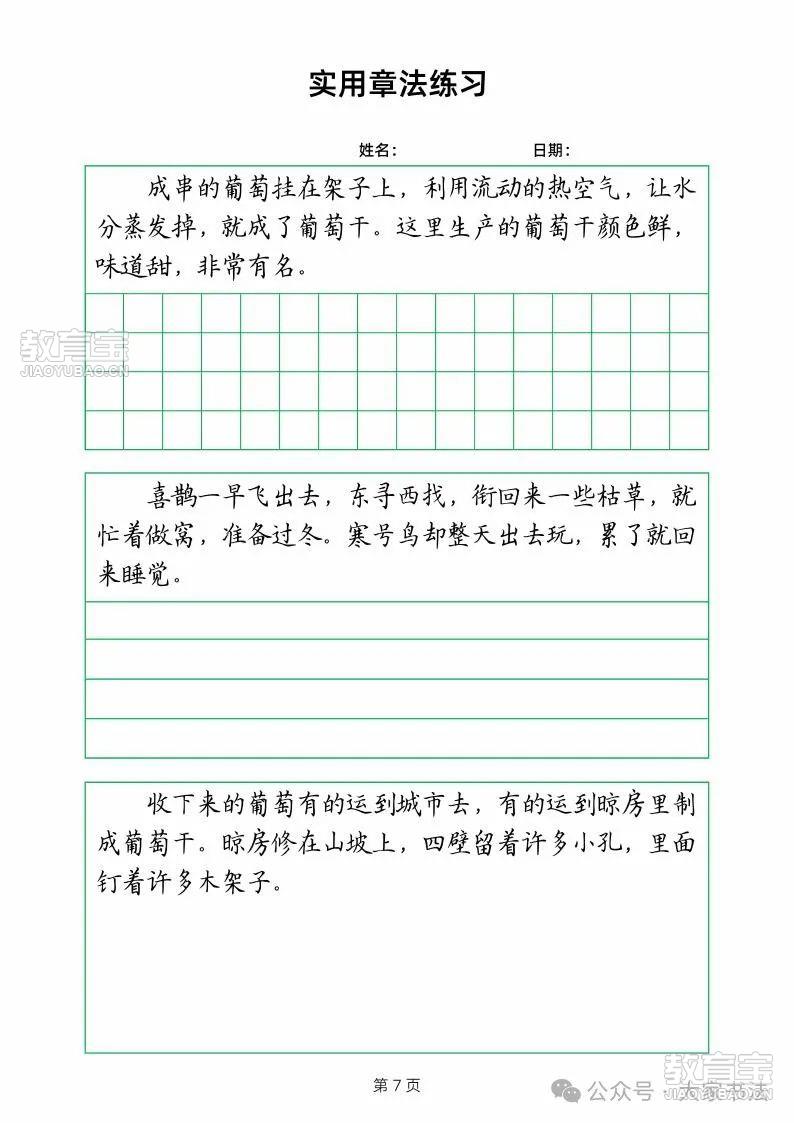 实用章法练习
姓名： 日期：
成串的葡萄挂在架子上，利用流动的热空气，让水
分蒸发掉，就成了葡萄干。这里生产的葡萄干颜色鲜，
味道甜，非常有名。
教育宝
JIAOYUBAO.CN
喜鹊一早飞出去，东寻西找，衔回来一些枯草，就
忙着做窝，准备过冬。寒号鸟却整天出去玩，累了就回
来睡觉。
收下来的葡萄有的运到城市去，有的运到晾房里制
成葡萄干。晾房修在山坡上，四壁留着许多小孔，里面
钉着许多木架子。
第 7 页
公众号 · 大家书法
教育宝
JIAOYUBAO.CN